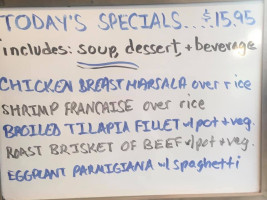 TODAY'S SPECIALS....$15.95
includes: soup, dessert, + beverage
CHICKEN BREAST MARSALA over rice
SHRIMP FRANCAISE over rice
BROILED TILAPIA FILLET w/pot + veg.
ROAST BRISKET OF BEEF w/pot + veg.
EGGPLANT PARMIGIANA w/ spaghetti